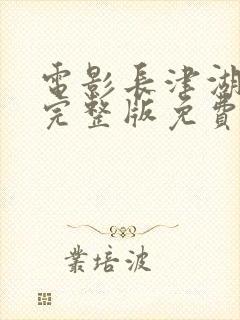 電影長津湖
完整版免費
業培波